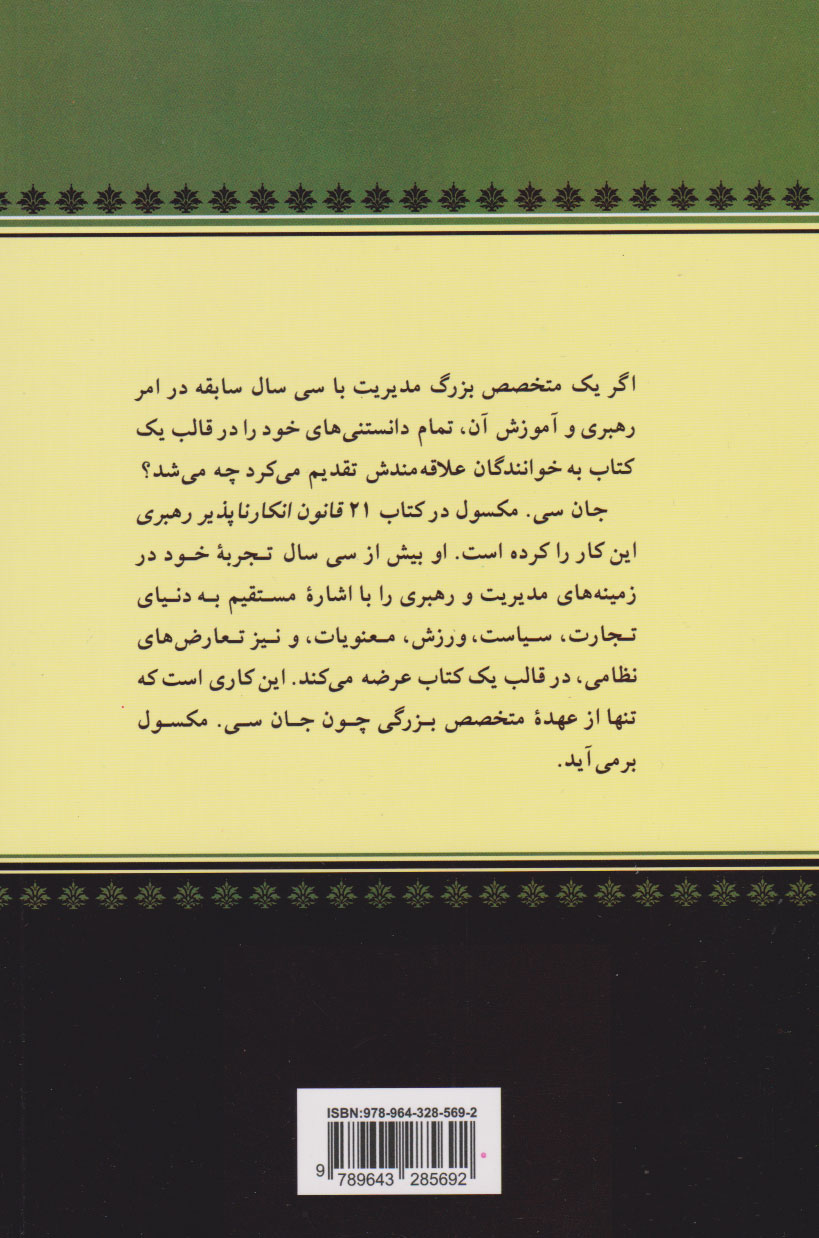 اگر یک متخصص بزرگ مدیریت با سی سال سابقه در امر
رهبری و آموزش آن، تمام دانستنی‌های خود را در قالب یک
کتاب به خوانندگان علاقه‌مندش تقدیم می‌کرد چه می‌شد؟
جان سی. مکسول در کتاب ۲۱ قانون انکارناپذیر رهبری
این کار را کرده است. او بیش از سی سال تجربهٔ خود در
زمینه‌های مدیریت و رهبری را با اشارهٔ مستقیم به دنیای
تجارت، سیاست، ورزش، معنویات، و نیز تعارض‌های
نظامی، در قالب یک کتاب عرضه می‌کند. این کاری است که
تنها از عهدهٔ متخصص بزرگی چون جان سی. مکسول
برمی‌آید.
ISBN:978-964-328-569-2
9 789643 285692